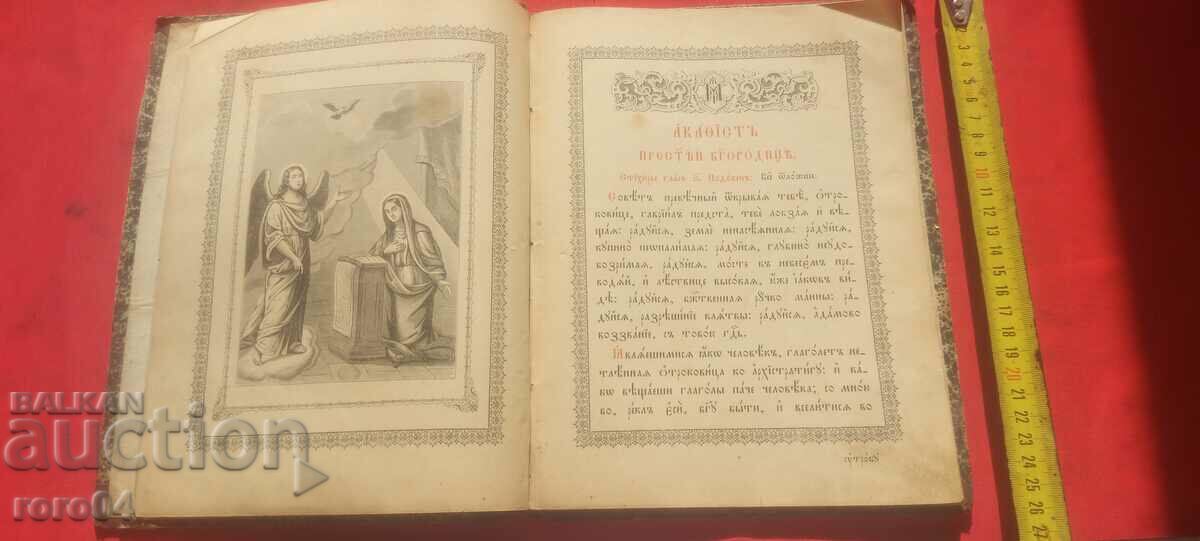 АКАѲІСТЪ
ПРЕСТѢ́Й БЦ҃ОРОДИЦѢ.
Стїхи̑ры гла́съ Подо́бенъ:
Совѣ́тъ превѣ́чный ѿкрыва́ѧ тебѣ̀, ѻ҆тро-
кови́це, гаврїи́лъ предста̀, тебѐ лобза́ѧ и҆ вѣ-
ща́ѧ: ра́дꙋйсѧ, землѐ ненасѣ́ѧннаѧ: ра́дꙋйсѧ,
кꙋпино̀ неѡпали́маѧ: ра́дꙋйсѧ, глꙋбино̀ неꙋдо-
возри́маѧ, ра́дꙋйсѧ, мо́сте къ небесє́мъ пре-
водѧ́й, и҆ лѣ́ствице высо́каѧ, ю҆́же і҆а́кѡвъ ви́-
дѣ: ра́дꙋйсѧ, бж҃е́ственнаѧ рꙋ́чко ма́нны: ра́-
дꙋйсѧ, разрѣше́нїе клѧ́твы: ра́дꙋйсѧ, а҆да́мово
воззва́нїе, съ тобо́ю гд҇ь.
Ꙗ҆влѧ́ешимисѧ ꙗ҆́кѡ человѣ́къ, глаго́летъ не-
тлѣ́ннаѧ ѻ҆трокови́ца ко а҆рхїстрати́гꙋ: и҆ ка́-
кѡ вѣща́еши глаго́лы па́че человѣ́ка; со мно́ю
бо, ре́клъ є҆сѝ, бг҃ꙋ бы́ти, и҆ всели́тисѧ во
ᲂу҆тро́бꙋ
2 3 4 5 6 7 8 9 10 11 12 13 14 15 16 17 18 19 20 21 22 23 24 25 26 27
BALKAN
auction
roro04